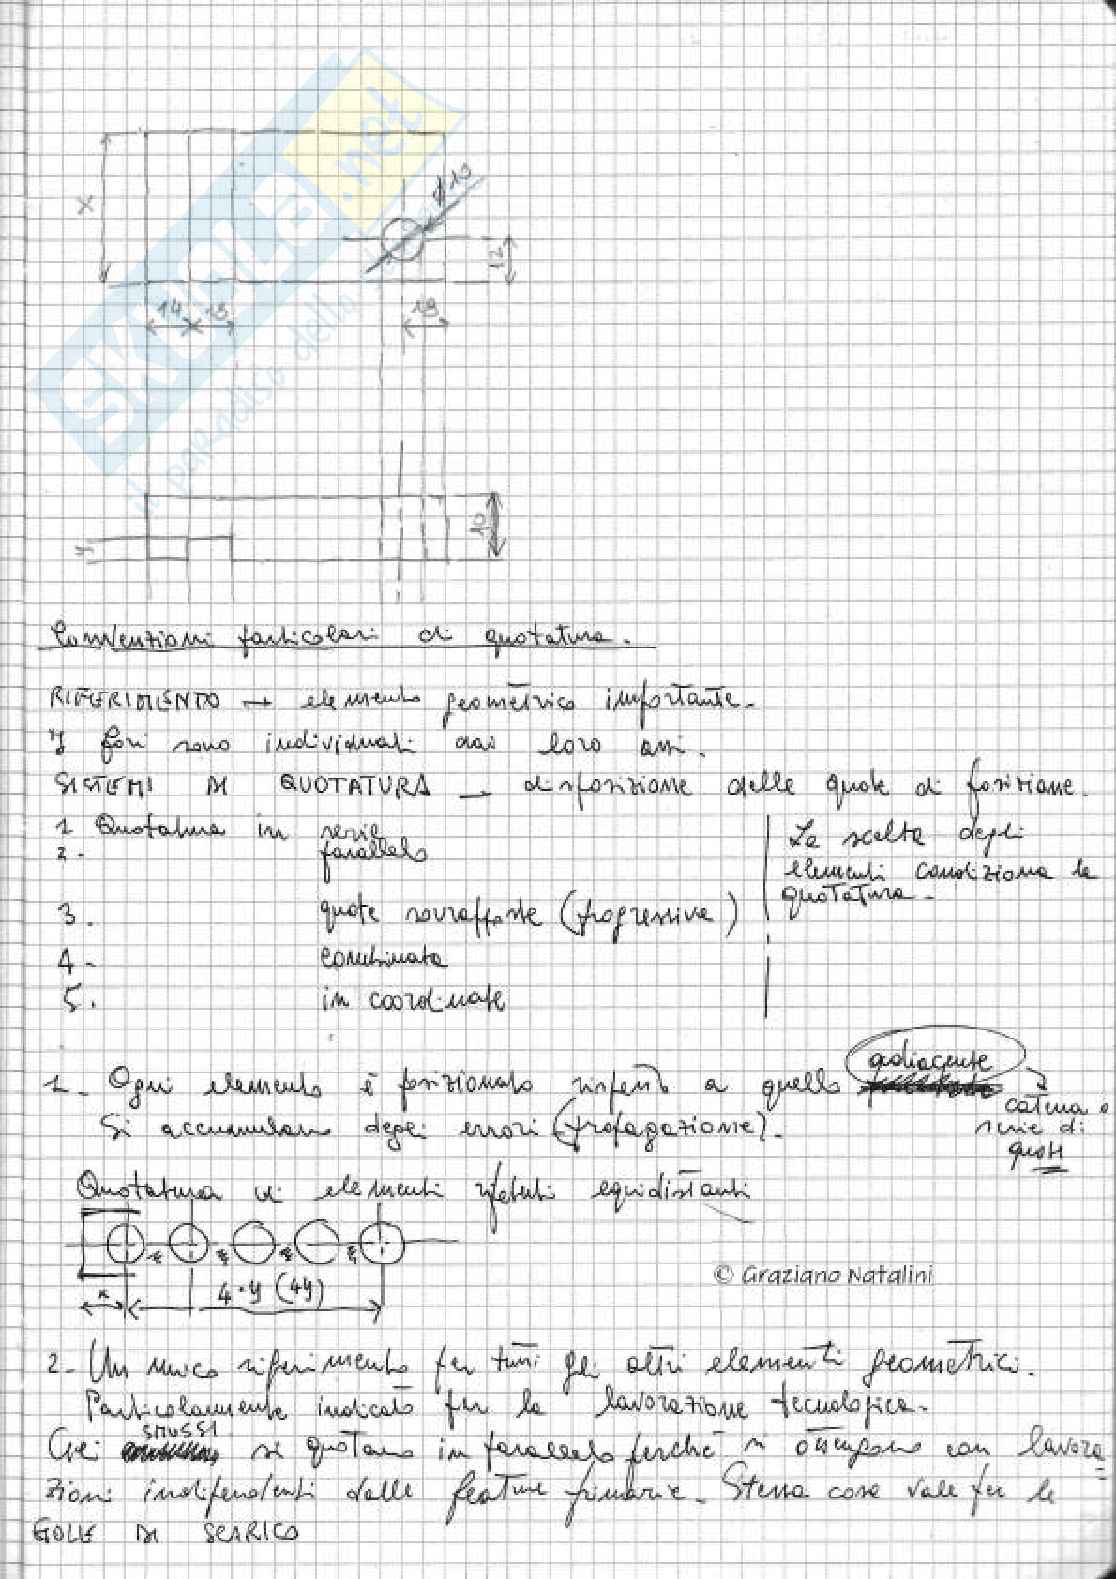 SKUOLA.net
il paradiso dello
X
ø10
12
14 13
13
10
Convenzioni particolari di quotatura.
RIFERIMENTO → elemento geometrico importante.
I fori sono individuati dai loro assi.
SISTEMI DI QUOTATURA → disposizione delle quote di posizione.
1 Quotatura in serie
2. parallelo
3. quote sovrapposte (progressive)
4. combinata
5. in coordinate
La scelta degli
elementi condiziona la
quotatura.
1. Ogni elemento è posizionato rispetto a quello adiacente
catena o
serie di
quote
Si accumulano degli errori (propagazione).
Quotatura di elementi ripetuti equidistanti
4·y (4y)
x
© Graziano Natalini
2. Un unico riferimento per tutti gli altri elementi geometrici.
Particolarmente indicato per la lavorazione tecnologica.
Gli SMUSSI si quotano in parallelo perché si ottengono con lavora=
zioni indipendenti dalle feature primarie. Stessa cosa vale per le
GOLE DI SCARICO